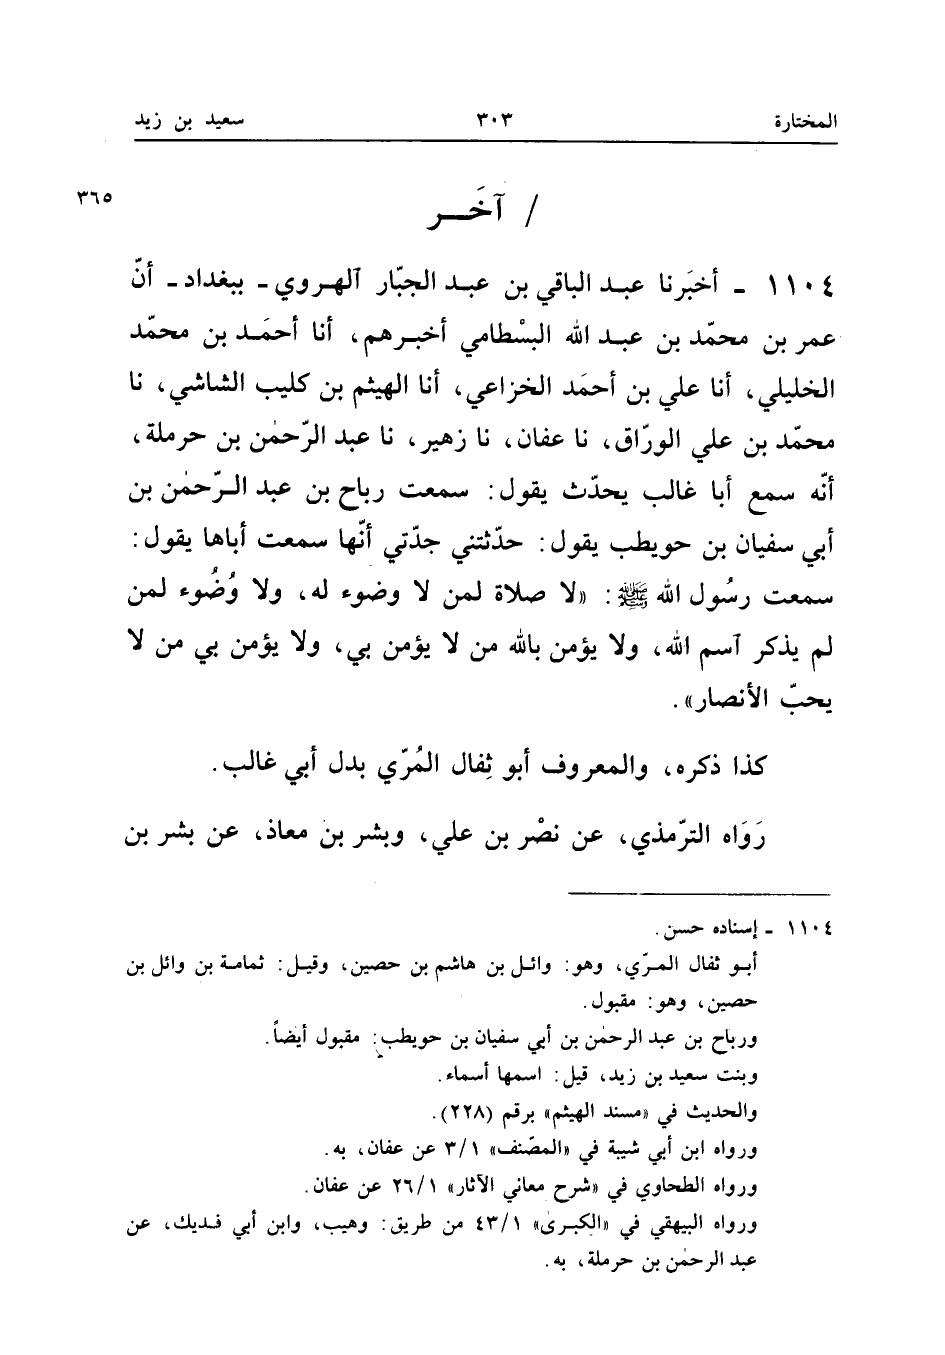 المختارة ٣٠٣ سعيد بن زيد
٣٦٥
/ آخَـــر
١١٠٤ - أخبَرنا عبـد الباقي بن عبـد الجبّار ٱلهـروي - ببغداد - أنّ
عمر بن محمّد بن عبـد الله البسْطامي أخبـرهم، أنا أحمَـد بن محمّد
الخليلي، أنا علي بن أحمَد الخزاعي، أنا الهيثم بن كليب الشاشي، نا
محمّد بن علي الورّاق، نا عفان، نا زهير، نا عبد الرّحمٰن بن حرملة،
أنّه سمع أبا غالب يحدّث يقول: سمعت رباح بن عبد الـرّحمٰن بن
أبي سفيان بن حويطب يقول: حدّثتني جدّتي أنّها سمعت أباها يقول:
سمعت رسُول الله ﷺ: «لا صلاة لمن لا وضوء له، ولا وُضُوء لمن
لم يذكر ٱسم الله، ولا يؤمن بالله من لا يؤمن بي، ولا يؤمن بي من لا
يحبّ الأنصار».
كذا ذكره، والمعروف أبو ثِفال المُرّي بدل أبي غالب.
رَوَاه الترّمذي، عن نصْر بن علي، وبشر بن معاذ، عن بشر بن
١١٠٤ - إسناده حسن.
أبـو ثفال المـرّي، وهو: وائـل بن هاشم بن حصين، وقيـل: ثمامـة بن وائل بن
حصين، وهو: مقبول.
ورباح بن عبد الرحمٰن بن أبي سفيان بن حويطب: مقبول أيضاً.
وبنت سعيد بن زيد، قيل: اسمها أسماء.
والحديث في «مسند الهيثم» برقم (٢٢٨).
ورواه ابن أبي شيبة في «المصّنف» ٣/١ عن عفان، به.
ورواه الطحاوي في «شرح معاني الآثار» ٢٦/١ عن عفان.
ورواه البيهقي في «الكبرىٰ» ٤٣/١ من طريق: وهيب، وابن أبي فـديك، عن
عبد الرحمٰن بن حرملة، به.